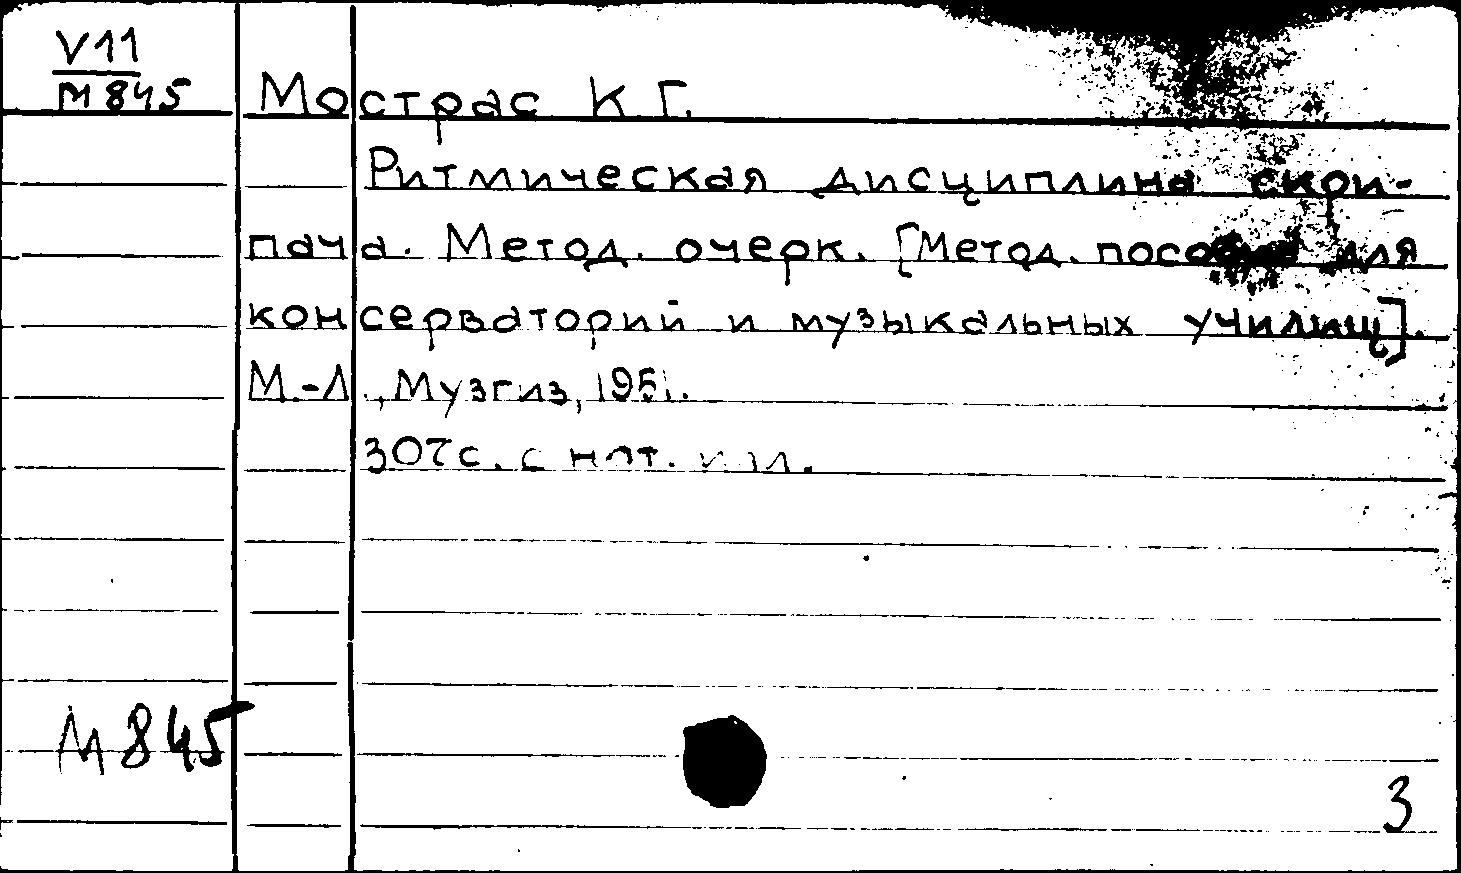 V11
М845
Мострас К.Г.
Ритмическая дисциплина скри-
пача. Метод. очерк. [Метод. пособие для
консерваторий и музыкальных училищ].
М.-Л., Музгиз, 1951.
307с. с нот. илл.
М845
3